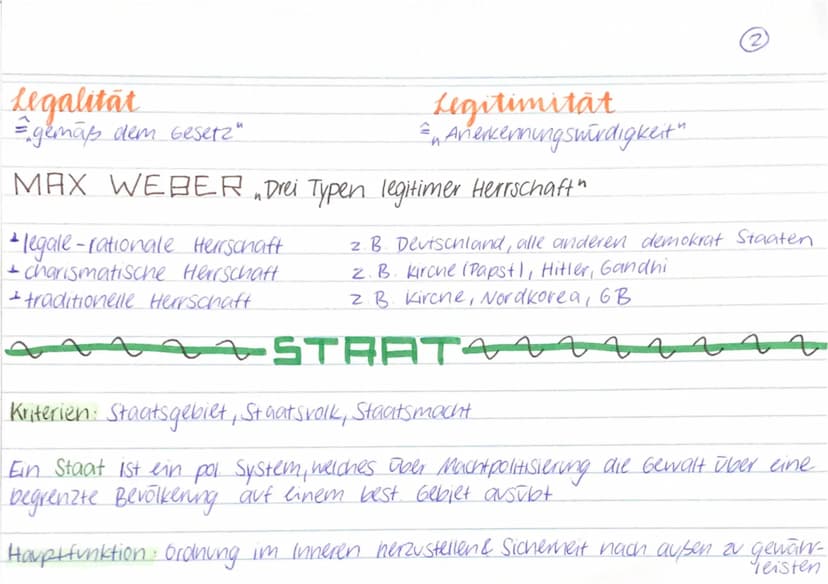 2
Legalität Legitimität
≙ „gemäß dem Gesetz" ≙ „Anerkennungswürdigkeit"
MAX WEBER „Drei Typen legitimer Herrschaft"
legale-rationale Herrschaft z.B. Deutschland, alle anderen demokrat. Staaten
charismatische Herrschaft z.B. Kirche (Papst), Hitler, Gandhi
traditionelle Herrschaft z.B. Kirche, Nordkorea, GB
STAAT
Kriterien: Staatsgebiet, Staatsvolk, Staatsmacht
Ein Staat ist ein pol. System, welches über Machtpolitisierung die Gewalt über eine
begrenzte Bevölkerung auf einem best. Gebiet ausübt
Hauptfunktion: Ordnung im Inneren herzustellen & Sicherheit nach außen zu gewähr-
leisten